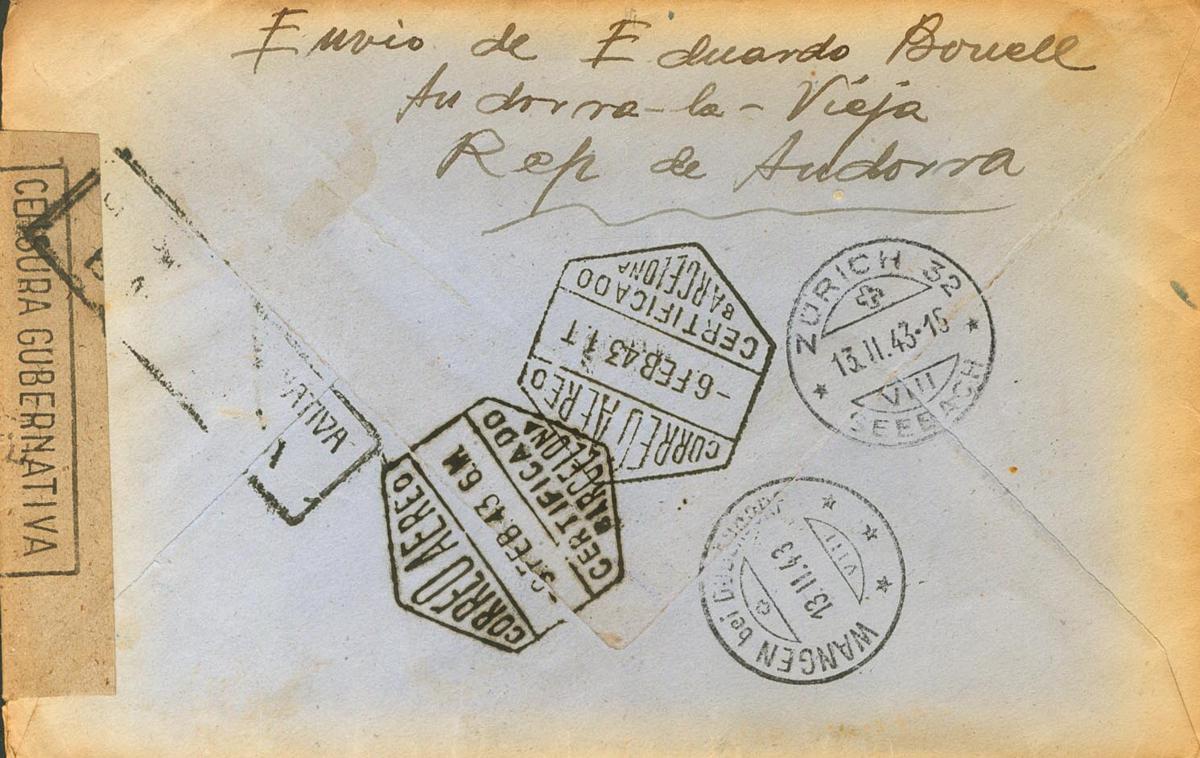 Envio de Eduardo Bonell
Andorra-la-Vieja
Rep de Andorra
CENSURA GUBERNATIVA
CERTIFICADO
BARCELONA
-6 FEB 43 1.T
CORREO AEREO
ZÜRICH 32
13.II.43-16
VIII
SEEBACH
CORREO AEREO
FEB 43 6.M
CERTIFICADO
BARCELONA
WANGEN bei
13 II.43
VIII